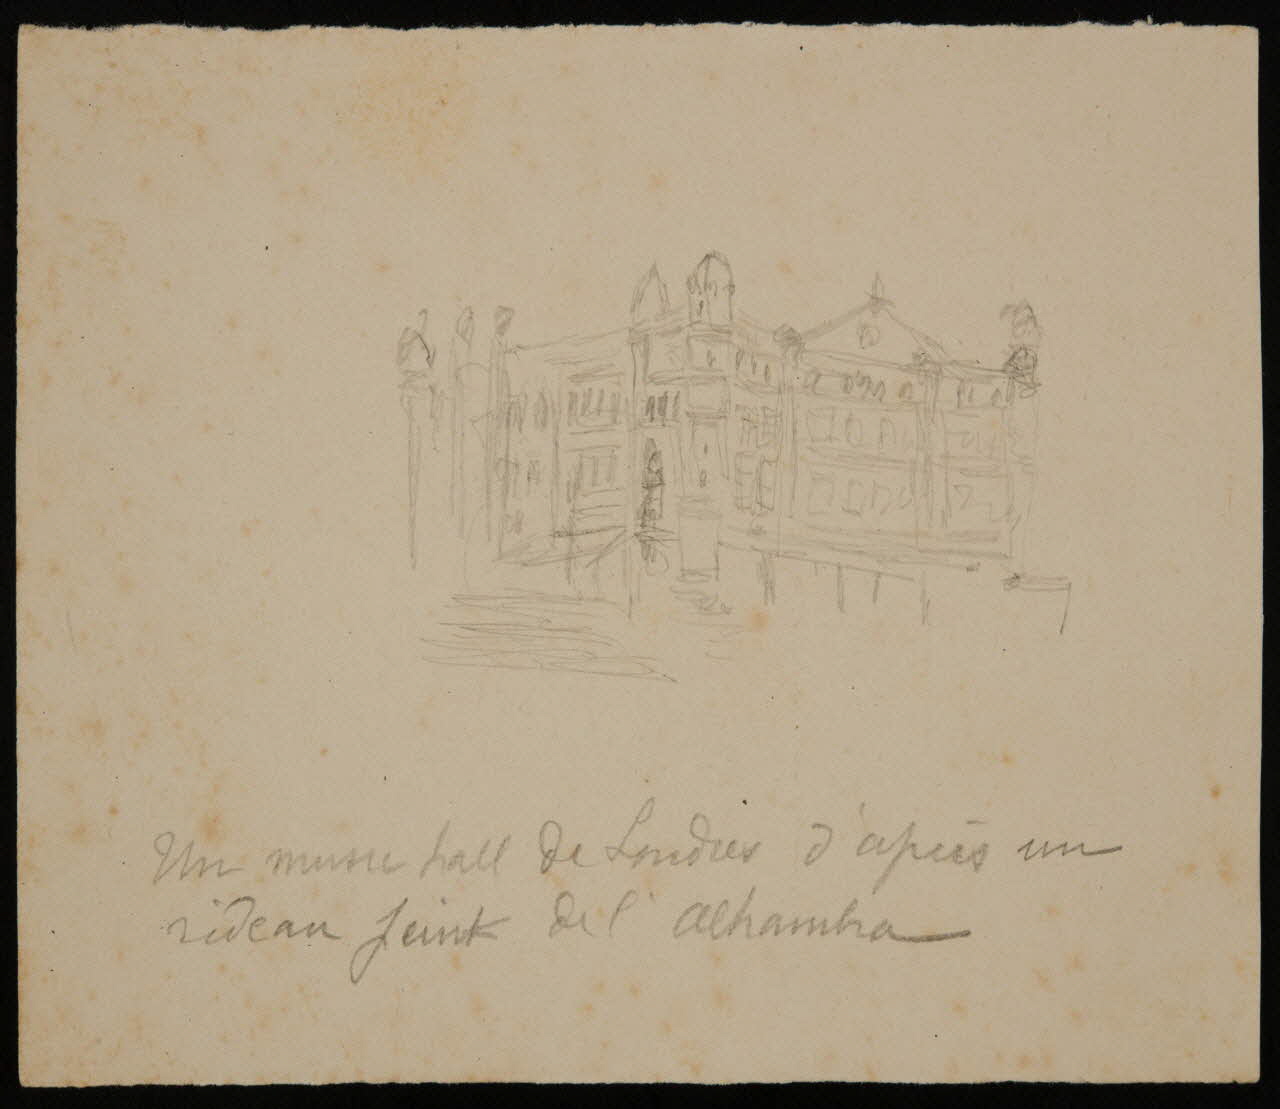 Un music hall de Londres d'après un
rideau peint de l'alhambra